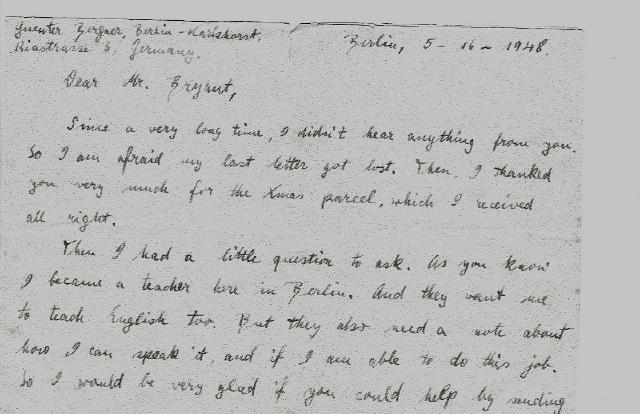 Guenter Bergner, Berlin-Karlshorst.
Riastrasse 6, Germany.
Berlin, 5-16-1948.
Dear Mr. Bryant,
Since a very long time, I didn't hear anything from you.
So I am afraid, my last letter got lost. Then, I thanked
you very much for the Xmas parcel, which I received
all right.
Then I had a little question to ask. As you know
I became a teacher here in Berlin. And they want me
to teach English too. But they also need a note about
how I can speak it, and if I am able to do this job.
So I would be very glad if you could help by sending